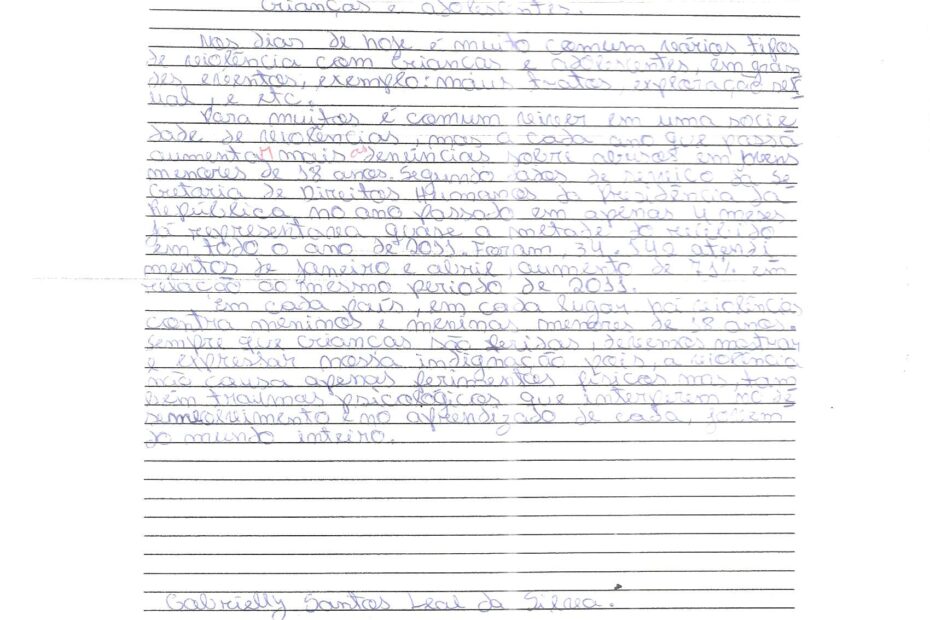 crianças e adolescentes.
Nos dias de hoje é muito comum vários tipos
de violência com crianças e adolescentes, em gran
des eventos, exemplo: maus tratos, exploração sex
ual, e etc.
Para muitos é comum viver em uma socie
dade de violências, mas a cada ano que passa
aumentar mais as denúncias sobri abusos em jovens
menores de 18 anos. Segundo dados de serviço da Se
cretaria de Direitos Humanos da Presidência da
República, no ano passado em apenas 4 meses,
já representava quase a metade do recebido
em todo o ano de 2011. Foram, 34.540 atendi
mentos de janeiro e abril, aumento de 71% em
relação ao mesmo periodo de 2011.
Em cada país, em cada lugar há violências
contra meninos e meninas menores de 18 anos.
sempre que crianças são feridas, devemos mostrar
e expressar nossa indignação pois, a violência
não causa apenas ferimentos físicos mas, tam
bém traumas psicológicos que interfirem no de
semvolvimento e no aprendizado de cada, jovem
do mundo inteiro.
Gabrielly Santos Leal da Silva.